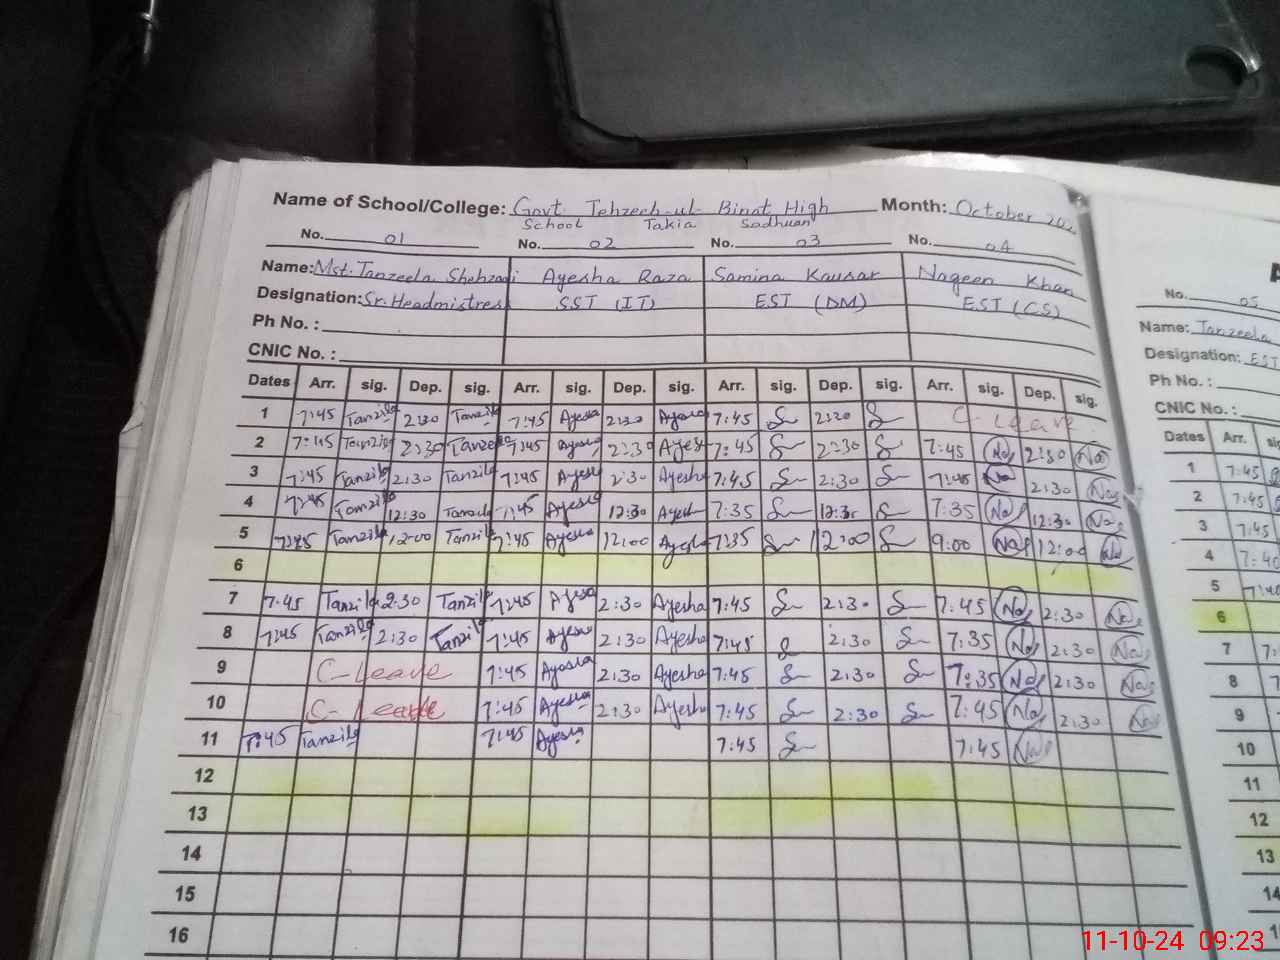 Name of School/College: Govt. Tehzeeb-ul-Binat High Month: October 202
School Takia Sadhuan
No. 01 No. 02 No. 03 No. 04
Name: Mst. Tanzeela Shehzadi Ayesha Raza Samina Kausar Nageen Khan
Designation: Sr. Headmistres SST (IT) EST (DM) EST (CS)
Ph No. :
CNIC No. :
Dates Arr. sig. Dep. sig. Arr. sig. Dep. sig. Arr. sig. Dep. sig. Arr. sig. Dep. sig.
1 7:45 Tanzila 2:30 Tanzila 7:45 Ayesha 2:30 Ayesha 7:45 2:30 C-Leave
2 7:45 Tanzila 2:30 Tanzela 7:45 Ayesha 2:30 Ayesh 7:45 2:30 7:45 Na 2:30 Na
3 7:45 Tanzila 2:30 Tanzila 7:45 Ayesha 2:30 Ayesha 7:45 2:30 7:45 Na 2:30 Na
4 7:45 Tanzila 12:30 Tanzila 7:45 Ayesha 12:30 Ayesh 7:35 12:30 7:35 Na 12:30 Na
5 7:45 Tanzila 12:00 Tanzila 7:45 Ayesha 12:00 Ayesha 7:35 12:00 9:00 Na 12:00 Na
6
7 7:45 Tanzila 2:30 Tanzila 7:45 Ayesha 2:30 Ayesha 7:45 2:30 7:45 Na 2:30 Na
8 7:45 Tanzila 2:30 Tanzila 7:45 Ayesha 2:30 Ayesha 7:45 2:30 7:35 Na 2:30 Na
9 C-Leave 7:45 Ayesha 2:30 Ayesha 7:45 2:30 7:35 Na 2:30 Na
10 C-Leave 7:45 Ayesha 2:30 Ayesha 7:45 2:30 7:45 Na 2:30 Na
11 7:45 Tanzila 7:45 Ayesha 7:45 7:45 Na
12
13
14
15
16
No. 05
Name: Tanzeela
Designation: EST
Ph No. :
CNIC No. :
Dates Arr.
1 7:45
2 7:45
3 7:45
4 7:40
5 7:40
6
7 7:
8
9
10
11
12
13
14
11-10-24 09:23